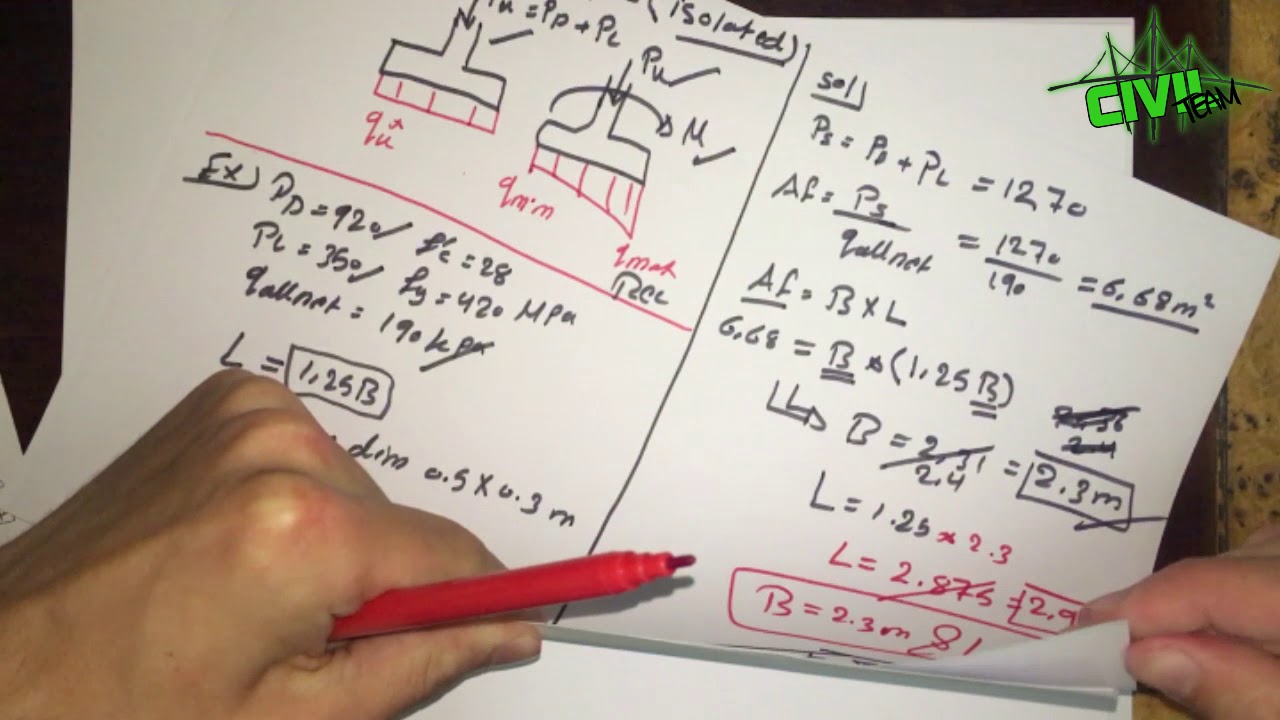 Pu = PD + PL
(isolated)
Pu
M
qu
qmin
qmax
Ex) PD = 920 f'c = 28
PL = 350 fy = 420 MPa
qallnet = 190 kpa
L = 1.25B
dim 0.5 X 0.3 m
sol
Ps = PD + PL = 1270
Af = Ps / qallnet = 1270 / 190 = 6.68 m²
Af = B X L
6.68 = B * (1.25B)
B = 2.31 = 2.3 m
2.4
L = 1.25 * 2.3
L = 2.875 = 2.9
B = 2.3 m
CIVIL
TEAM